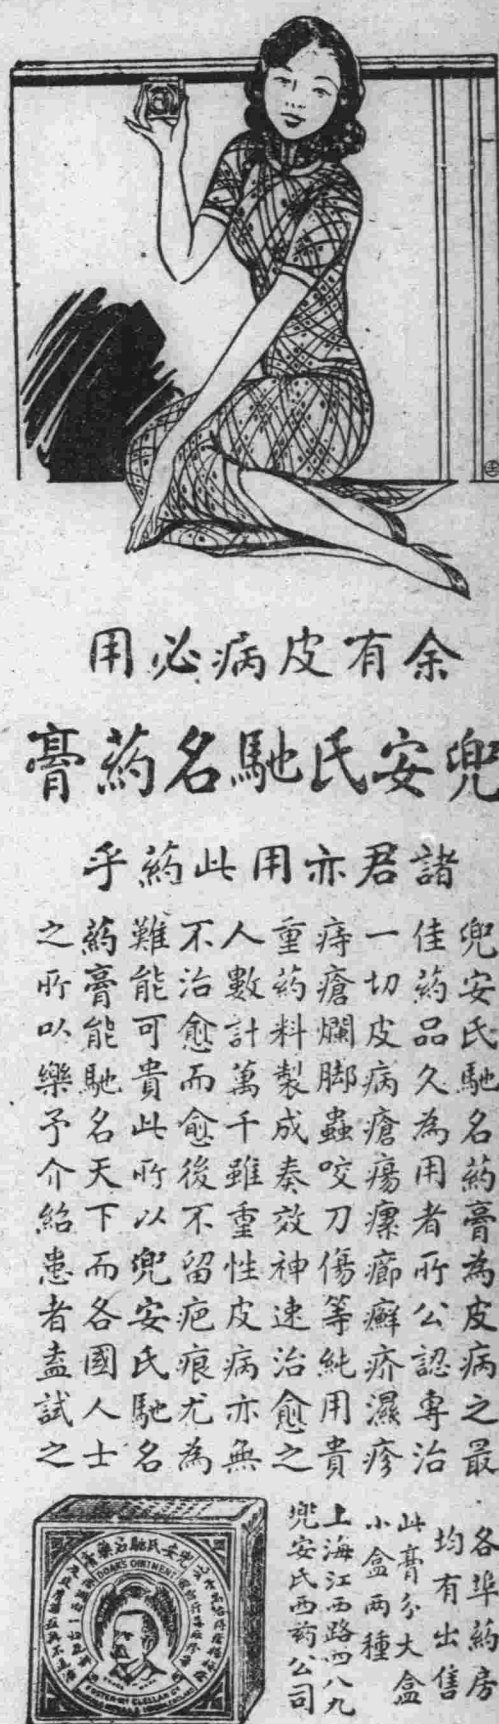 余有皮病必用
兜安氏馳名药膏
諸君亦用此药乎
兜安氏馳名药膏為皮病之最
佳药品久為用者所公認專治
一切皮病瘡瘍瘰癤癬疥濕疹
痔瘡爛脚蟲咬刀傷等純用貴
重药料製成奏效神速治愈之
人數計萬千雖重性皮病亦無
不治愈而愈後不留疤痕尤為
難能可貴此所以兜安氏馳名
药膏能馳名天下而各國人士
之所以樂予介紹患者盍試之
各埠药房
均有出售
此膏分大盒
小盒兩種
上海江西路四八九
兜安氏西药公司
兜安氏馳名藥膏
DOAN'S OINTMENT
FOSTER-McCLELLAN CO